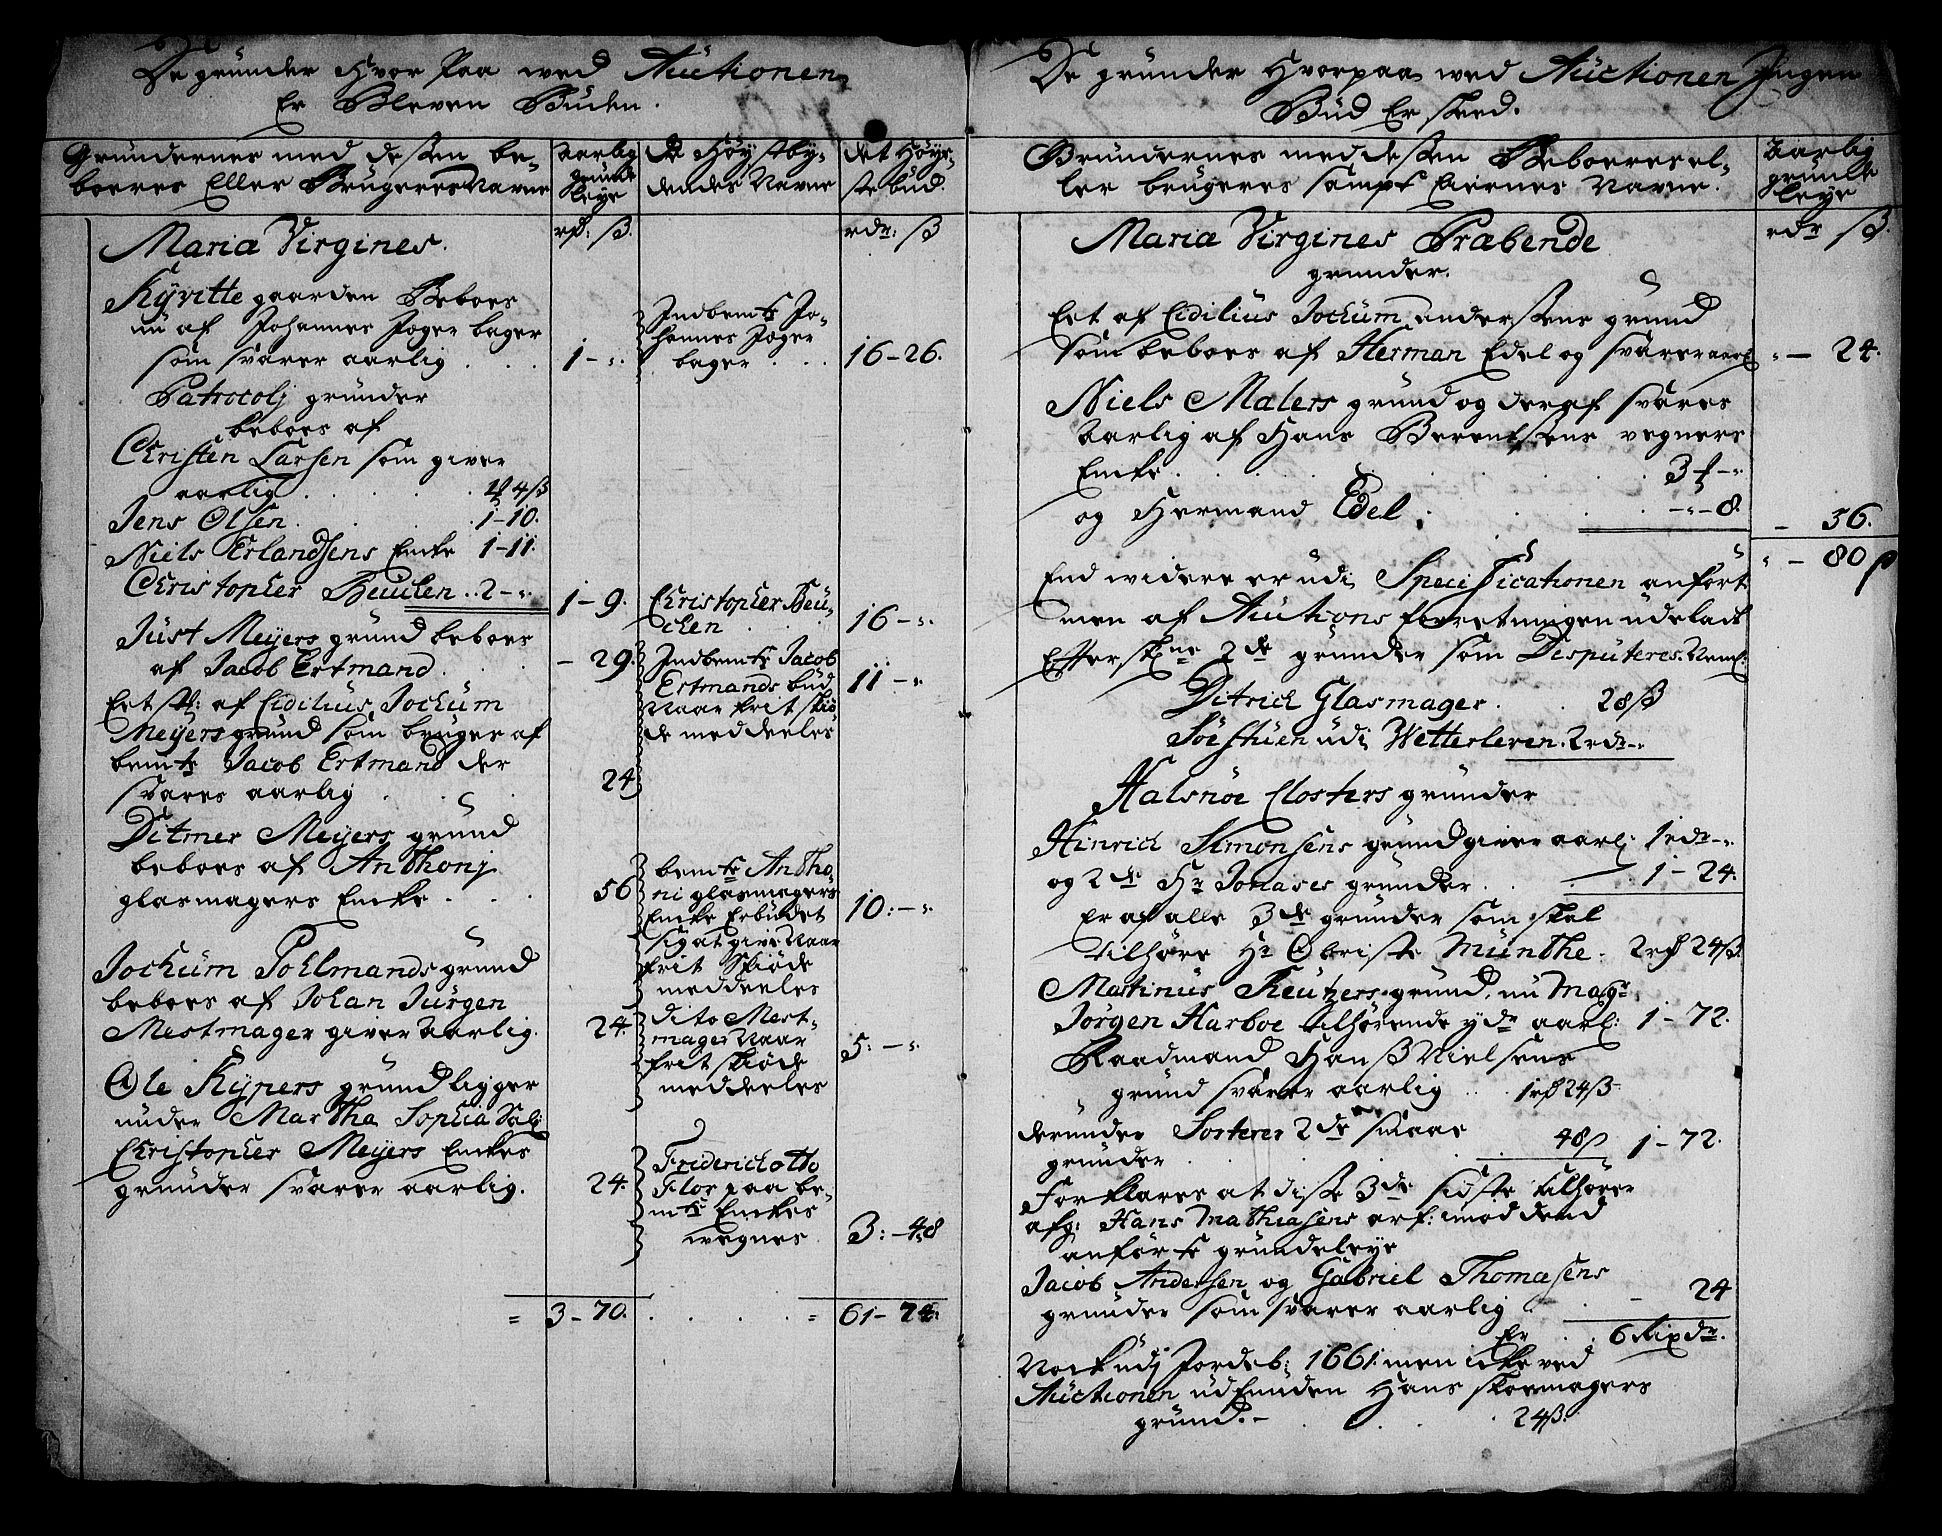 De grunder Hvor Paa wed Auctionen
Er Bleven Buden.
Grundernes med dessen be-
boeres Eller Brugeres Navne
Aarlig
grunde
leye
De Høystby-
dendes Navne
det Høye-
ste bud.
rd: ß.
rdr: ß
Maria Virgines.
Kÿvitte gaarden Beboes
nu af Johannes Joger bager
som svarer aarlig . . . 1 - „.
Indbemte Jo-
hannes Joger
bager . . . 16 - 26.
Patrocolj grunder
beboes af
Christen Larsen som giver
aarlig . . . 4ß
Jens Olsen . . . 1 - 10.
Niels Erlandsens Encke 1 - 11.
Christopher Beuchen . . 2 - „. 1 - 9.
Christopher Beu-
chen . . . 16 - „.
Just Meyers grund beboes
af Jacob Ertmand . . - 29.
Indbemte Jacob
Ertmands bud
Naar frit skiø-
de meddeeles
11 - „.
Eet st: af Eidilius Jochum
Meyers grund som bruges af
bemte Jacob Ertmand der
svares aarlig . . . 24
Ditmer Meyers grund
beboes af Anthonj
glasmagers Encke . . . 56
bemte Antho
ni glasmagers
Encke Erbudet
sig at give Naar
frit Skiøde
meddeeles
10: - „.
Jochum Pohlmands grund
beboes af Johan Jurgen
Mestmager giver Aarlig. 24.
dito Mest-
mager Naar
frit skiøde
meddeeles
5: - „.
Ole Kÿpers grund ligger
under Martha Sophia Sal:
Christopher Meyers Enckes
grunder svarer aarlig. 24.
Friderich otto
Flor paa be-
mte Enckes
wegnes . 3: - 48
= 3 - 70. . . . = 61 - 74.
De grunder Hvorpaa wed Auctionen Ingen
Bud Er skeed.
Grundernes med dessen Beboeres el-
ler brugeres sampt Eiernes Navne.
Aarlig
grunde
leye
rdr ß.
Maria Virgines Præbende
grunder.
Eet af Eidilius Jochum anderssens grund
som beboes af Herman Edel og svarer aarl „ - 24.
Niels Malers grund og deraf svares
Aarlig af Hans Berentsens vegners
Encke . . .
og Hermand Edel . . . - „ - 8. - 56.
„ - 80 ß
End widere er udi Specificationen anført
men af Auctions forretningen udeladt
Efterskne 2de grunder som Desputeres. Neml:
Ditrich Glasmager . . 28ß
Søestuen udi Wetterleven. 2rdr - „.
Halsnöe Closters grunder
Hinrich Simonsens grund giver aarl: 1rdr - „.
og 2de Hr Jonases grunder . . 1 - 24.
Er af alle 3de grunder som skal
tilhøre Hr Obriste Munthe. 2rd 24ß.
Martinus Keutzers grund, nu Magr
Jörgen Harboe tilhørende yder aarl: 1 - 72.
Raadmand Hanß Nielsens
grund svarer aarlig . . 1rd 24ß
derunder 2de smaae
grunder . . . 48ß 1 - 72.
Forklares at disse 3de sidste tilhører
afg: Hans Mathiasens arf: imod dend
anførte grundeleye
Jacob Andersen og Gabriel Thomasens
grunder som svarer aarlig . . - 24
Er . . 6 Rixdr.
Nock udj Jordeb: 1661: men icke ved
Auctionen udfunden Hans skoemagers
grund. - . . . 24ß.